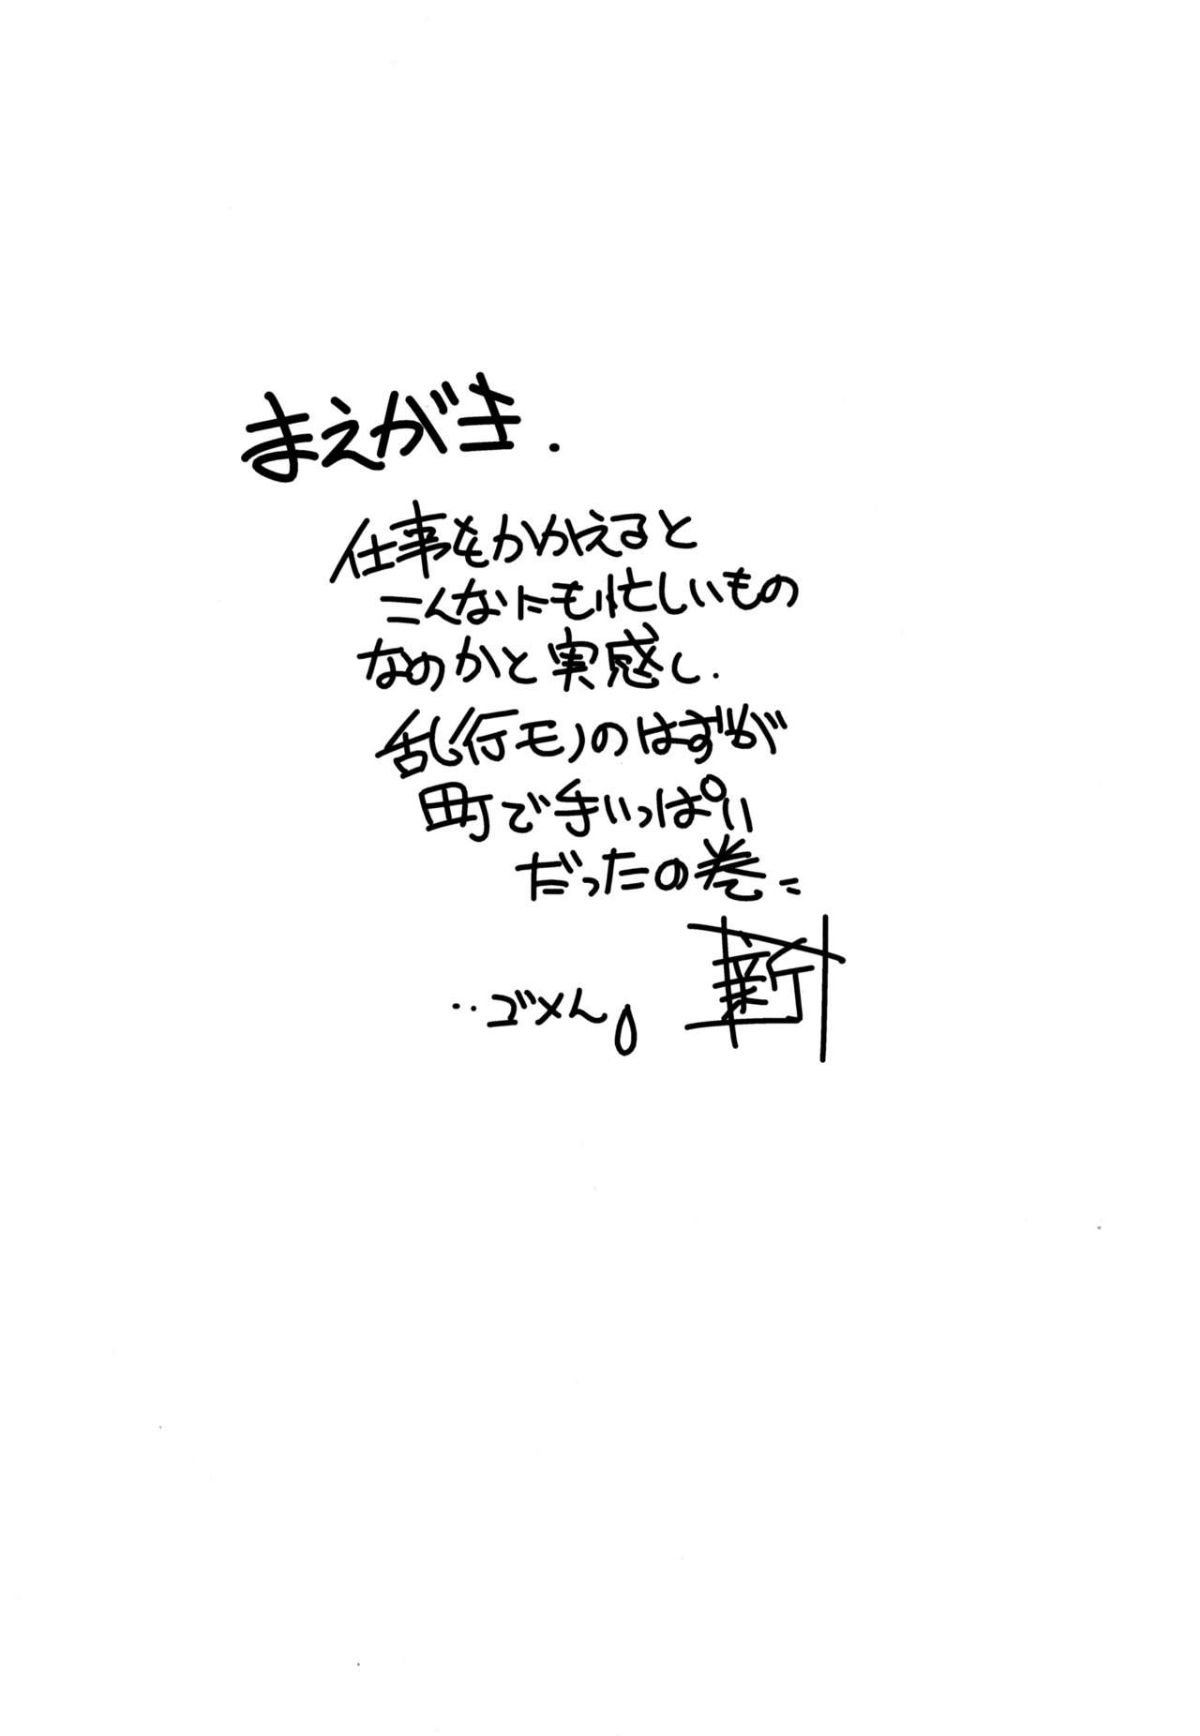 まえがき.
仕事をかかえると
こんなにも忙しいもの
なのかと実感し.
乱行モノのはずが
町で手いっぱい
だったの巻
新
‥ゴメん。